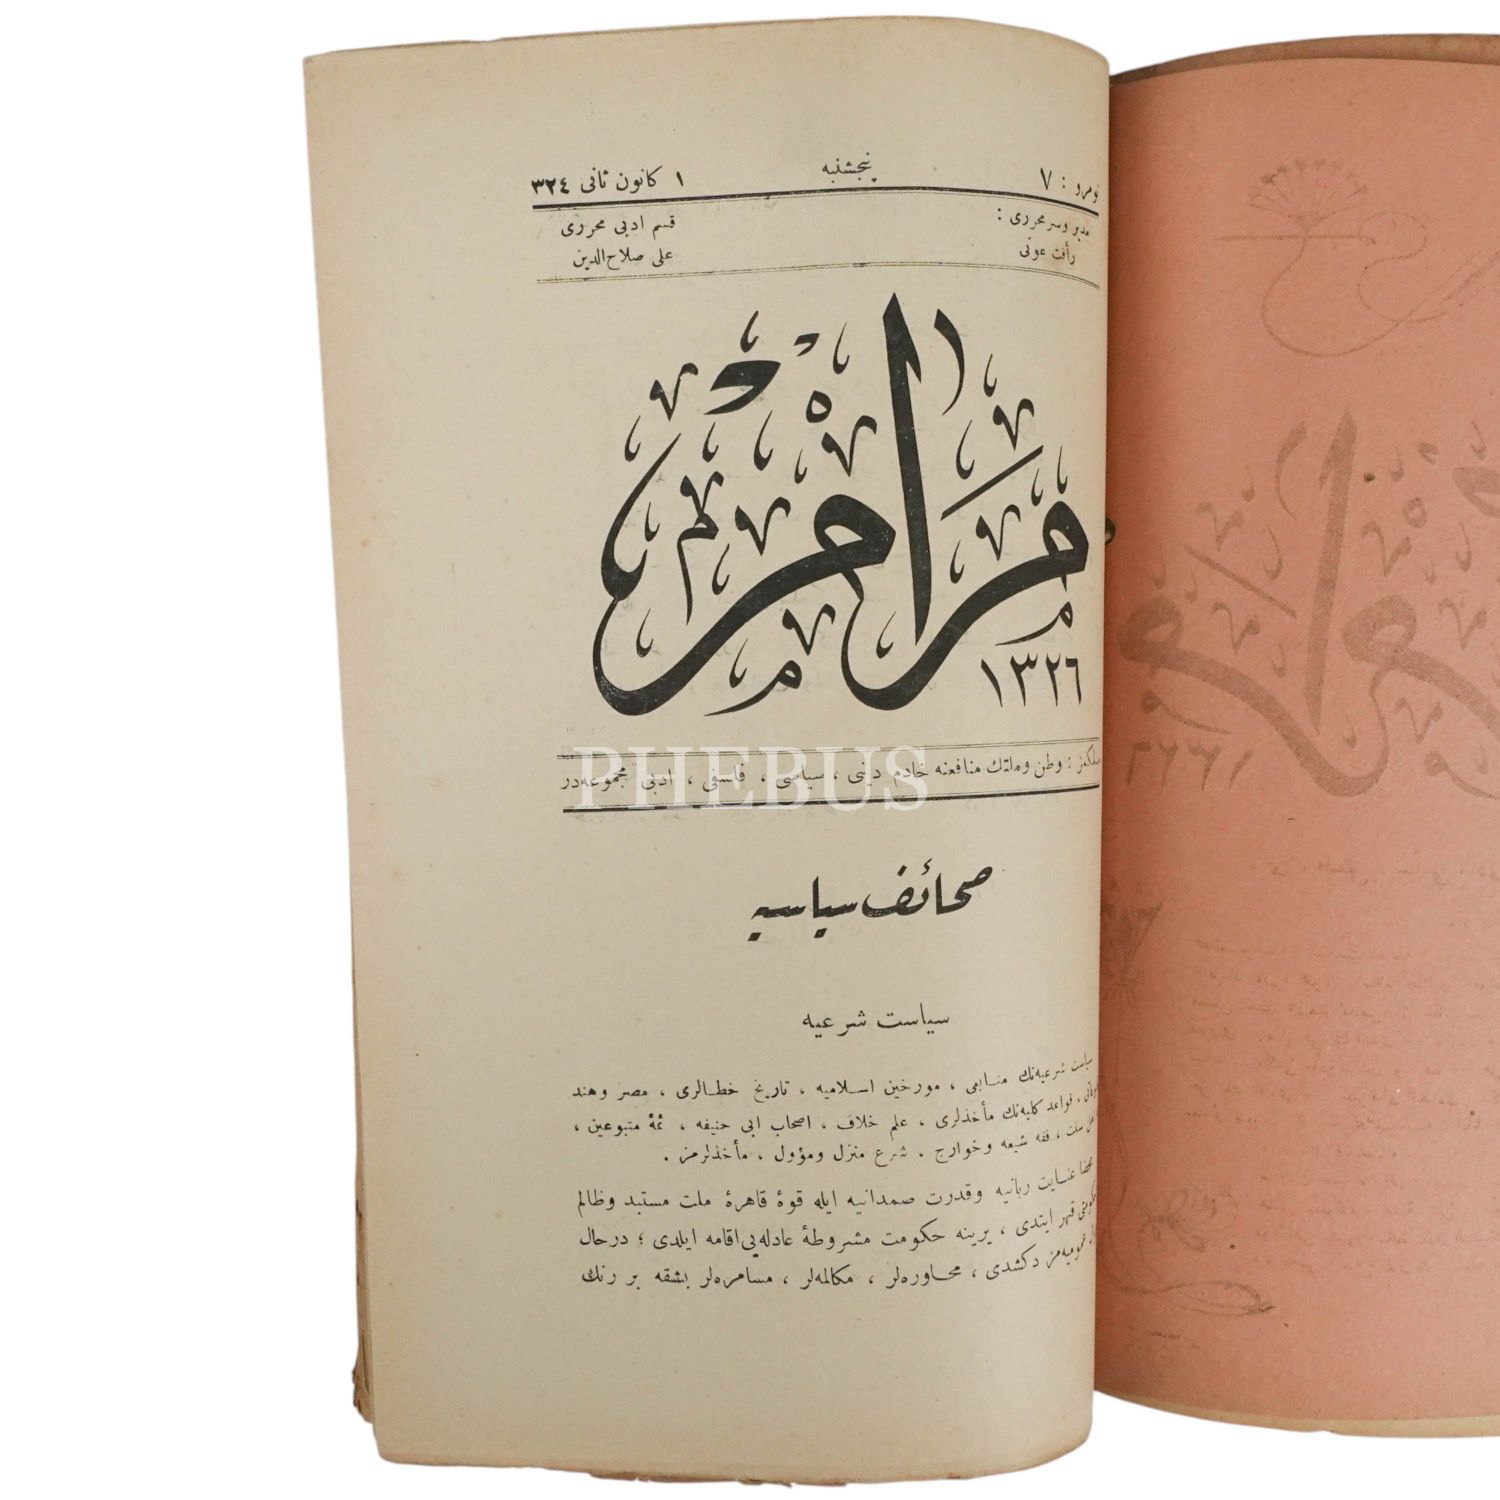 نومرو : ٧
پنجشنبه
١ كانون ثانى ٣٢٤
مدير وسرمحررى :
رأفت عونى
قسم ادبى محررى
على صلاح‌الدين
مرام
١٣٢٦
مسلكمز : وطن وملتك منافعنه خادم دينى ، سياسى ، فلسفى ، ادبى مجموعه‌در
PHEBUS
صحائف سياسيه
سياست شرعيه
سياست شرعيه‌نك منابعى ، مورخين اسلاميه ، تاريخ خطالرى ، مصر وهند
قواعد كليه‌نك مأخذلرى ، علم خلاف ، اصحاب ابى حنيفه ، ئمهٔ متبوعين ،
اهل سنت ، فقه شيعه وخوارج . شرع منزل ومؤول ، مأخذلرمز .
محضا عنايت ربانيه وقدرت صمدانيه ايله قوهٔ قاهرهٔ ملت مستبد وظالم
حكومتى قهر ايتدى ، يرينه حكومت مشروطهٔ عادله‌يى اقامه ايلدى ؛ درحال
عموميه‌مز دكشدى ، محاوره‌لر ، مكالمه‌لر ، مسامره‌لر بشقه بر رنك